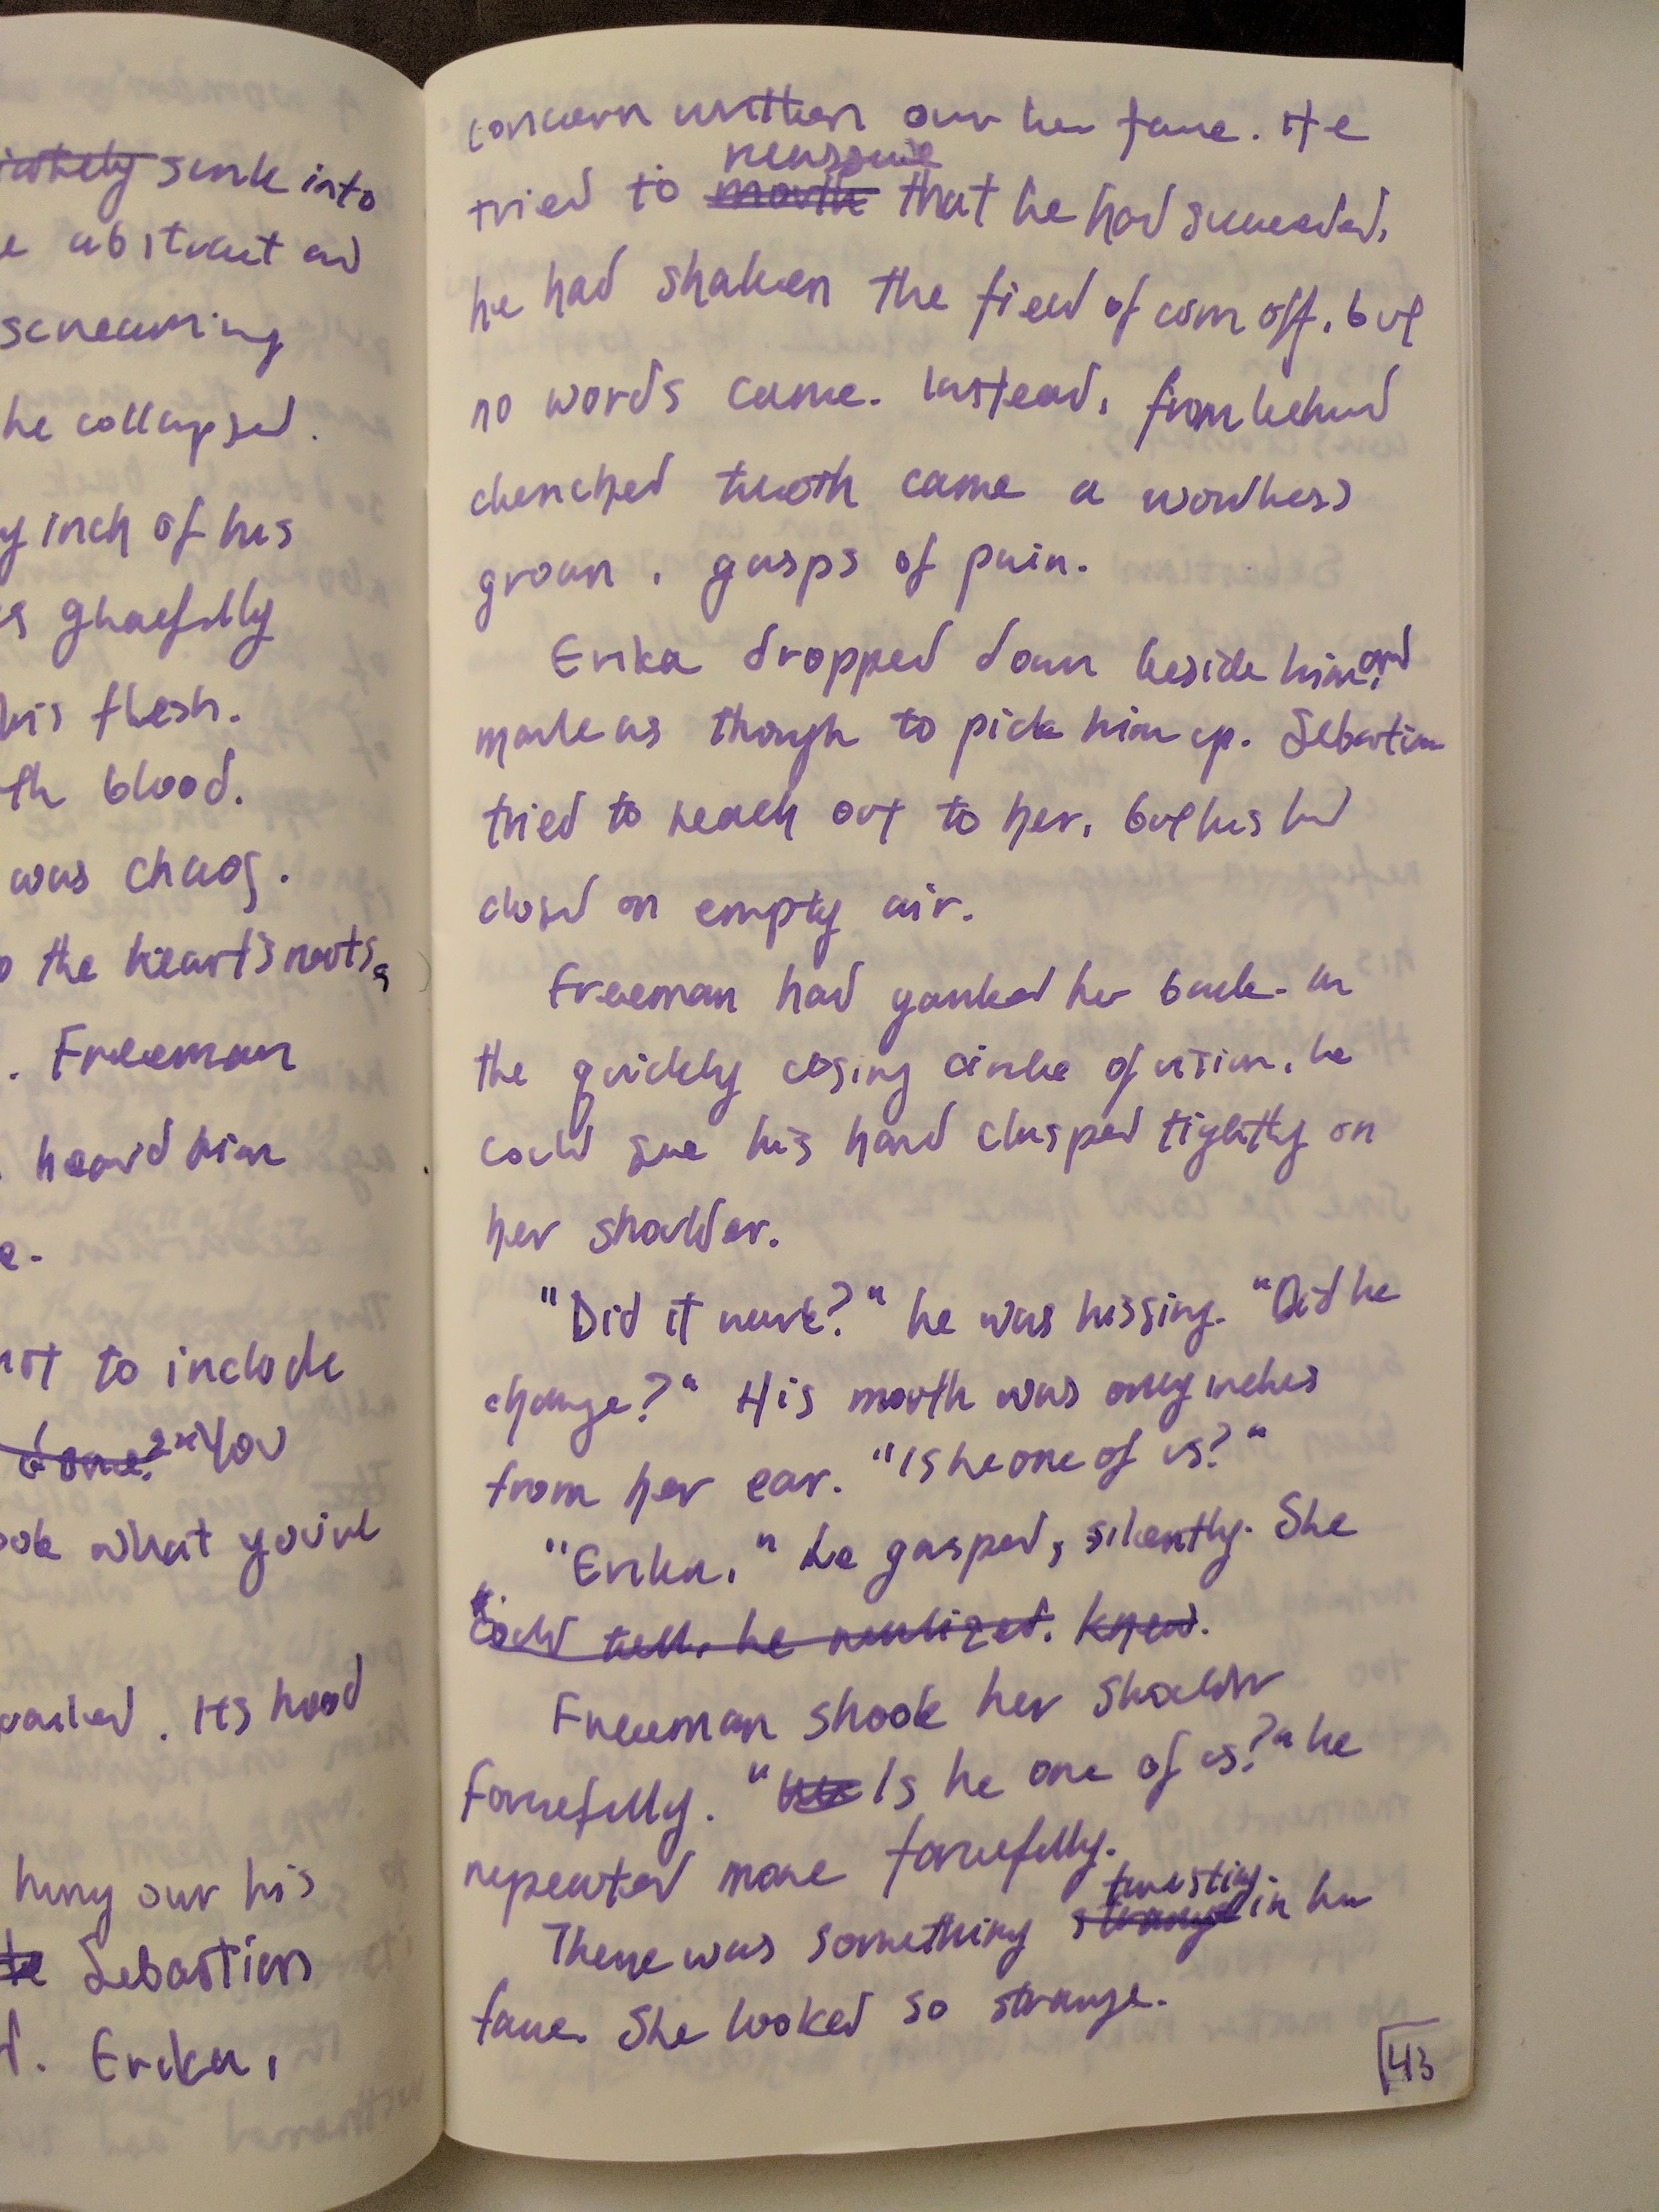 sunk into
abstract and
screaming
he collapsed.
inch of his
ghaefully
his flesh.
th blood.
was chaos.
the heart's roots,
. Freeman
heard him
e.
not to include
done? "You
what you've
. Its hood
hung over his
Sebastian
. Erika,
concern written over her face. He
reassure
tried to mouth that he had succeeded,
he had shaken the field of corn off, but
no words came. Instead, from behind
clenched teeth came a wordless
groan, gasps of pain.
Erika dropped down beside him, and
made as though to pick him up. Sebastian
tried to reach out to her, but his hand
closed on empty air.
Freeman had yanked her back. In
the quickly closing circle of vision, he
could see his hand clasped tightly on
her shoulder.
"Did it work?" he was hissing. "Did he
change?" His mouth was only inches
from her ear. "Is he one of us?"
"Erika," he gasped, silently. She
could tell, he realized. Knew.
Freeman shook her shoulder
forcefully. "Is he one of us?" he
repeated more forcefully.
twisting
There was something strange in her
face. She looked so strange.
43